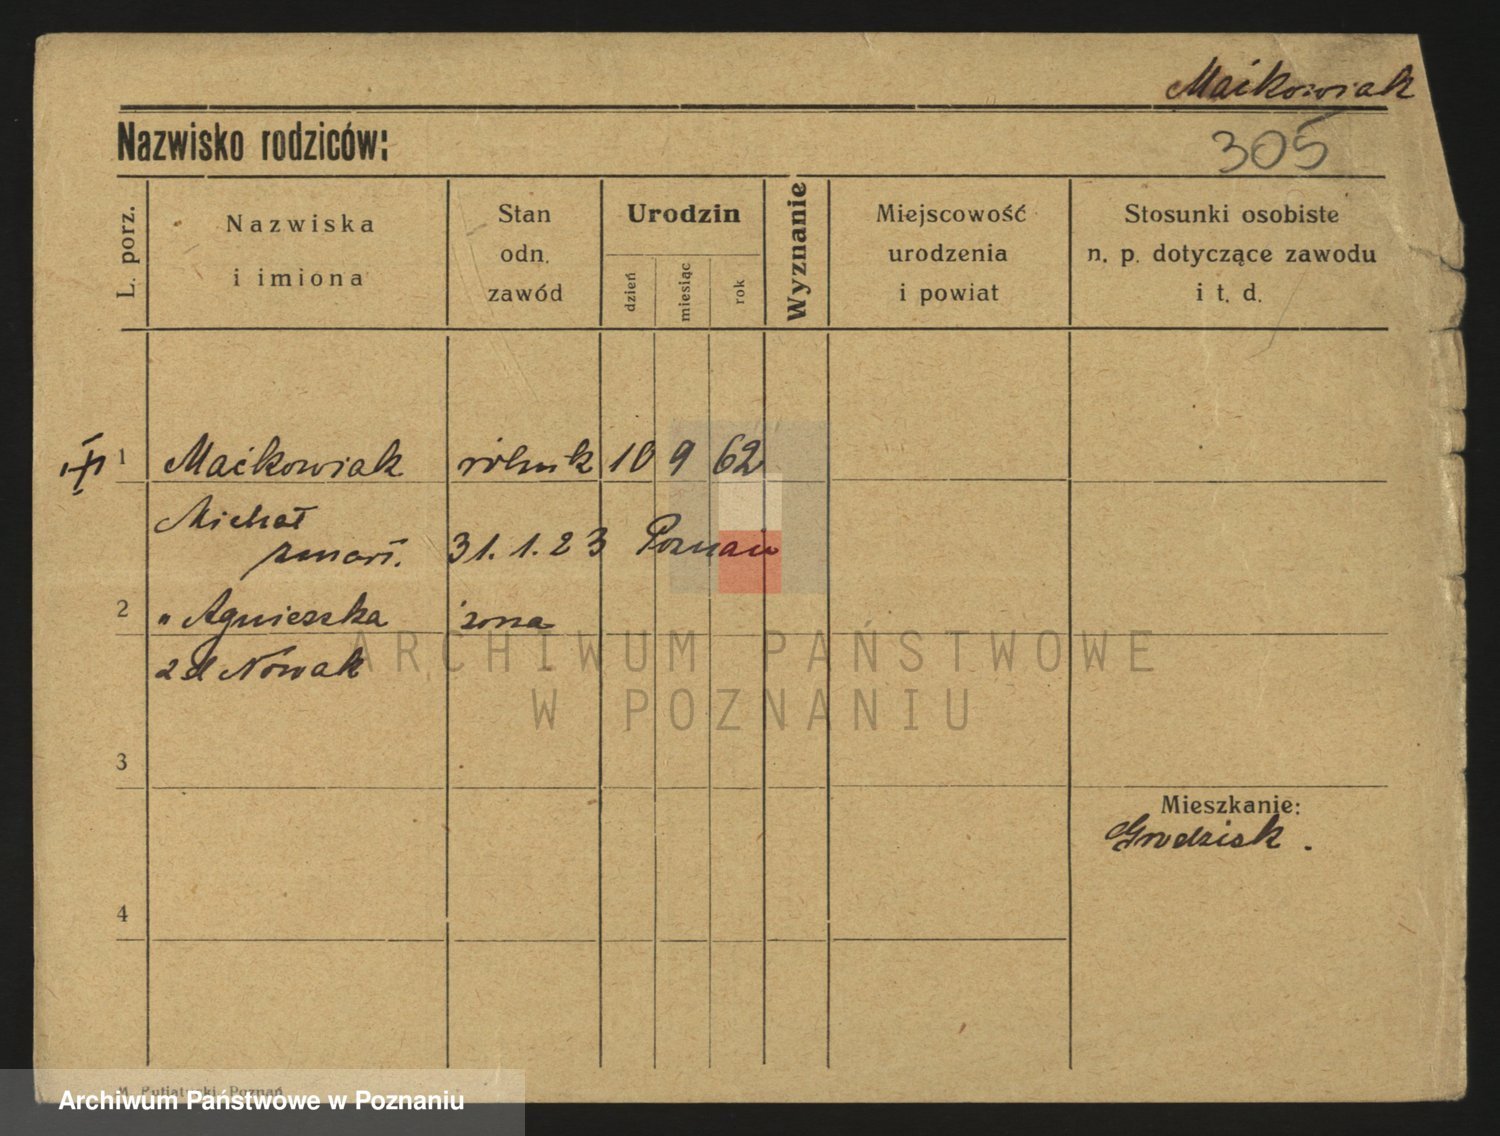 Maćkowiak
Nazwisko rodziców:
305
L. porz.
Nazwiska
i imiona
Stan
odn.
zawód
Urodzin
dzień
miesiąc
rok
Wyznanie
Miejscowość
urodzenia
i powiat
Stosunki osobiste
n. p. dotyczące zawodu
i t. d.
1 Maćkowiak rólnik 10 9 62
Michał
zmarł. 31.1.23 Poznań
2 " Agnieszka żona
zd Nowak
ARCHIWUM PAŃSTWOWE
W POZNANIU
3
Mieszkanie:
Grodzisk.
4
Poznań
Archiwum Państwowe w Poznaniu